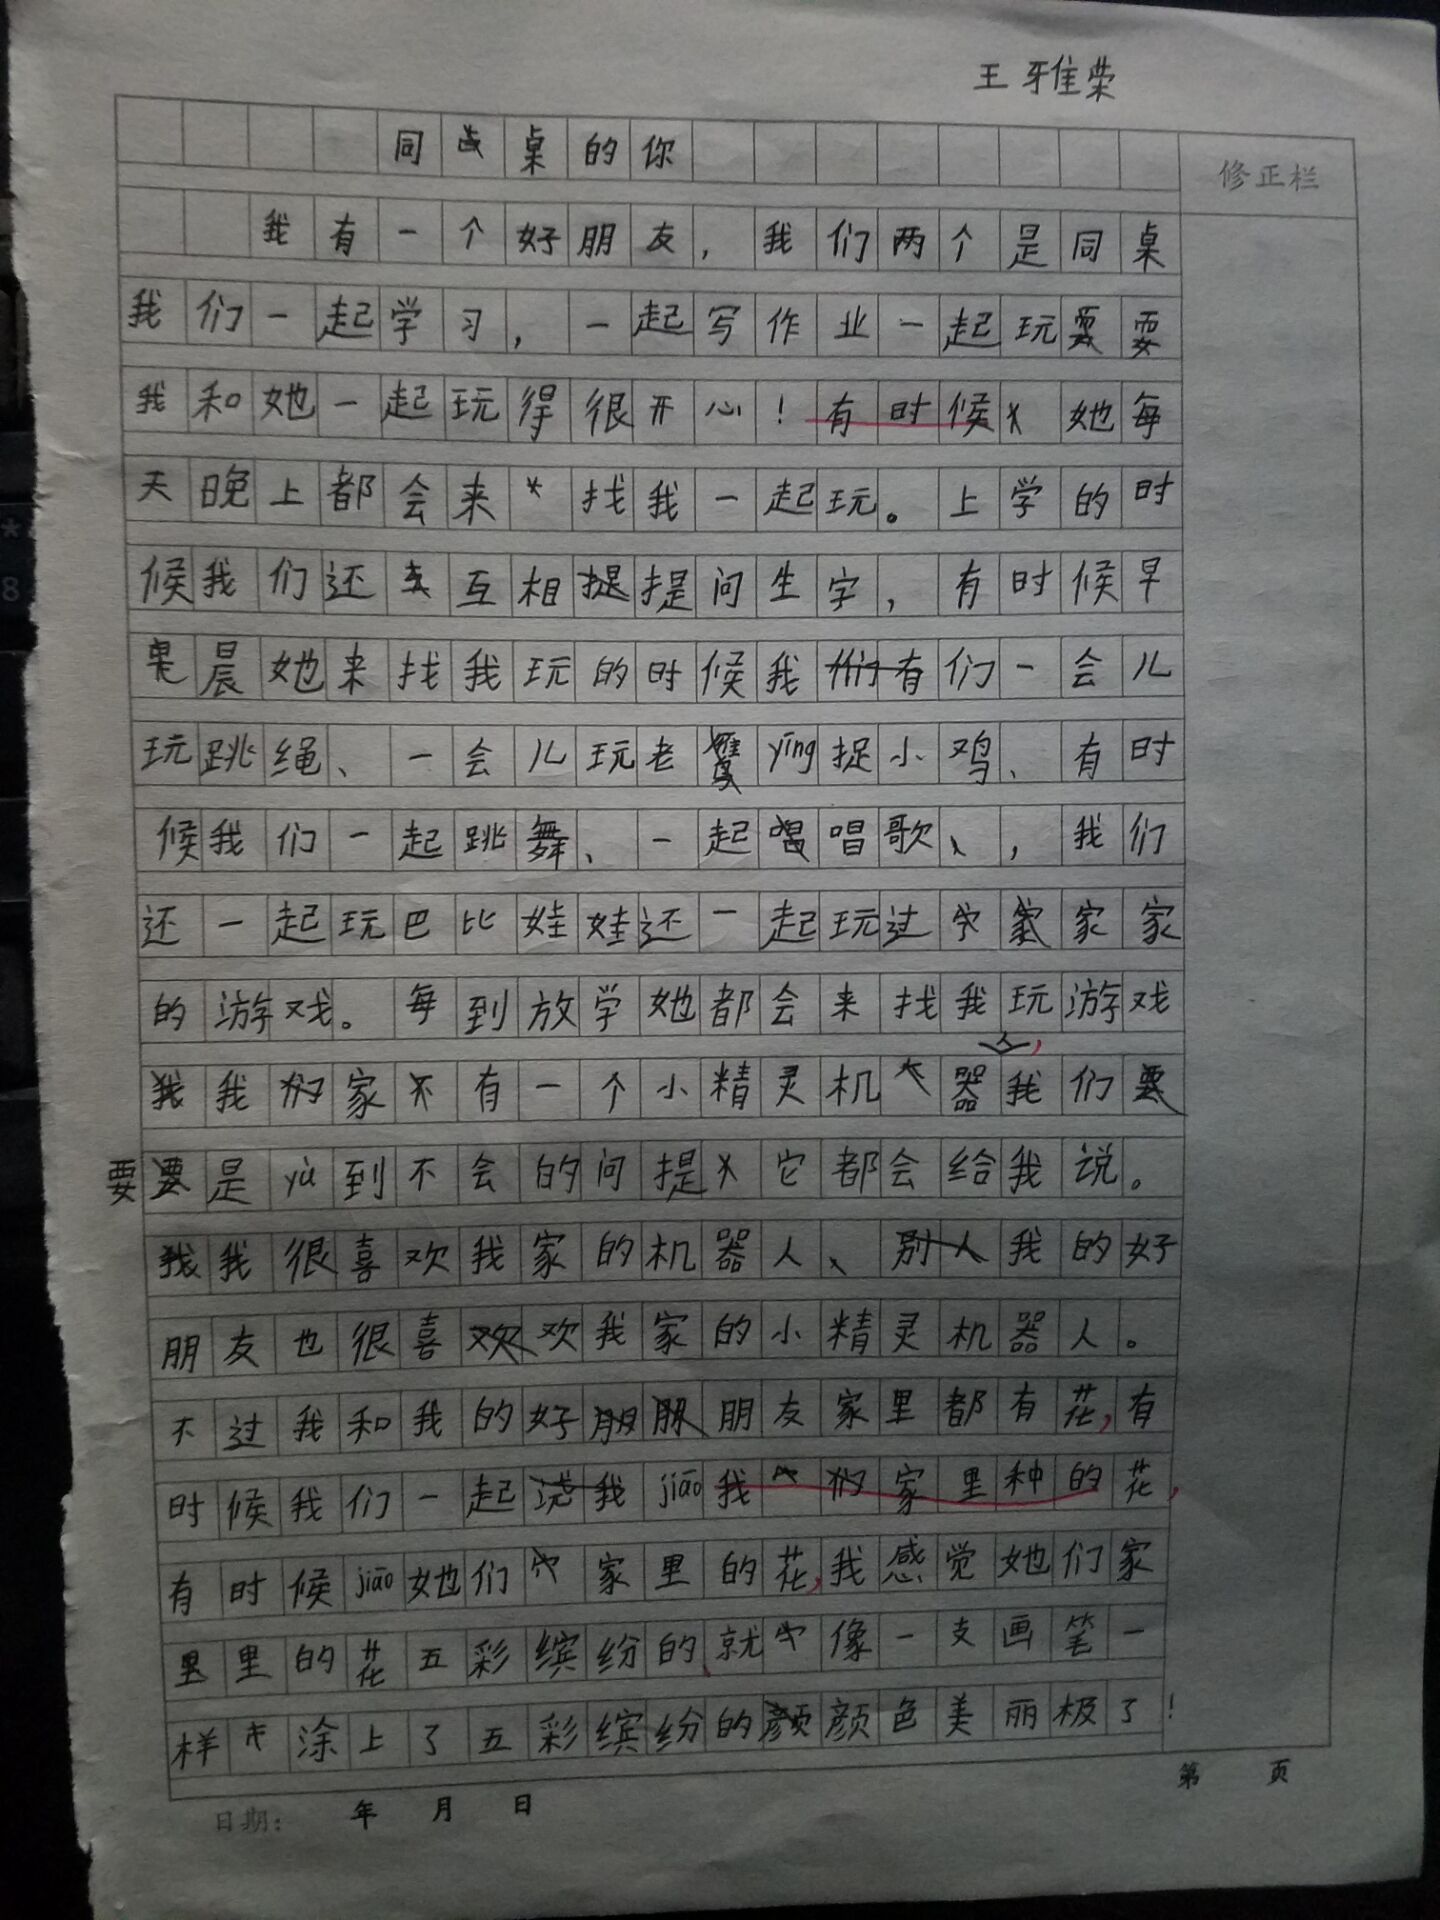 王雅荣
同桌的你
修正栏
我有一个好朋友，我们两个是同桌
我们一起学习，一起写作业一起玩耍
我和她一起玩得很开心！有时候她每
天晚上都会来找我一起玩。上学的时
候我们还互相提问生字，有时候早
晨她来找我玩的时候我们一会儿
玩跳绳、一会儿玩老yīng捉小鸡、有时
候我们一起跳舞、一起唱歌，我们
还一起玩巴比娃娃还一起玩过家家
的游戏。每到放学她都会来找我玩游戏
我家有一个小精灵机器人，我们
要是yù到不会的问提它都会给我说。
我很喜欢我家的机器人、我的好
朋友也很喜欢我家的小精灵机器人。
不过我和我的好朋友家里都有花，有
时候我们一起jiāo我家里种的花，
有时候jiāo她们家里的花，我感觉她们家
里的花五彩缤纷的，就像一支画笔一
样涂上了五彩缤纷的颜色美丽极了！
第 页
日期： 年 月 日